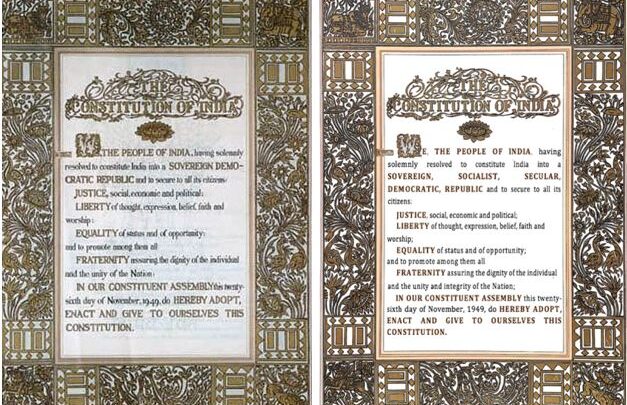 THE
CONSTITUTION OF INDIA
WE, THE PEOPLE OF INDIA, having solemnly
resolved to constitute India into a SOVEREIGN DEMO-
CRATIC REPUBLIC and to secure to all its citizens:
JUSTICE, social, economic and political;
LIBERTY of thought, expression, belief, faith and
worship;
EQUALITY of status and of opportunity;
and to promote among them all
FRATERNITY assuring the dignity of the individual
and the unity of the Nation;
IN OUR CONSTITUENT ASSEMBLY this twenty-
sixth day of November, 1949, do HEREBY ADOPT,
ENACT AND GIVE TO OURSELVES THIS
CONSTITUTION.
THE
CONSTITUTION OF INDIA
WE, THE PEOPLE OF INDIA, having
solemnly resolved to constitute India into a
SOVEREIGN, SOCIALIST, SECULAR,
DEMOCRATIC, REPUBLIC and to secure to all its
citizens:
JUSTICE, social, economic and political;
LIBERTY of thought, expression, belief, faith and
worship;
EQUALITY of status and of opportunity;
and to promote among them all
FRATERNITY assuring the dignity of the individual
and the unity and integrity of the Nation;
IN OUR CONSTITUENT ASSEMBLY this twenty-
sixth day of November, 1949, do HEREBY ADOPT,
ENACT AND GIVE TO OURSELVES THIS
CONSTITUTION.